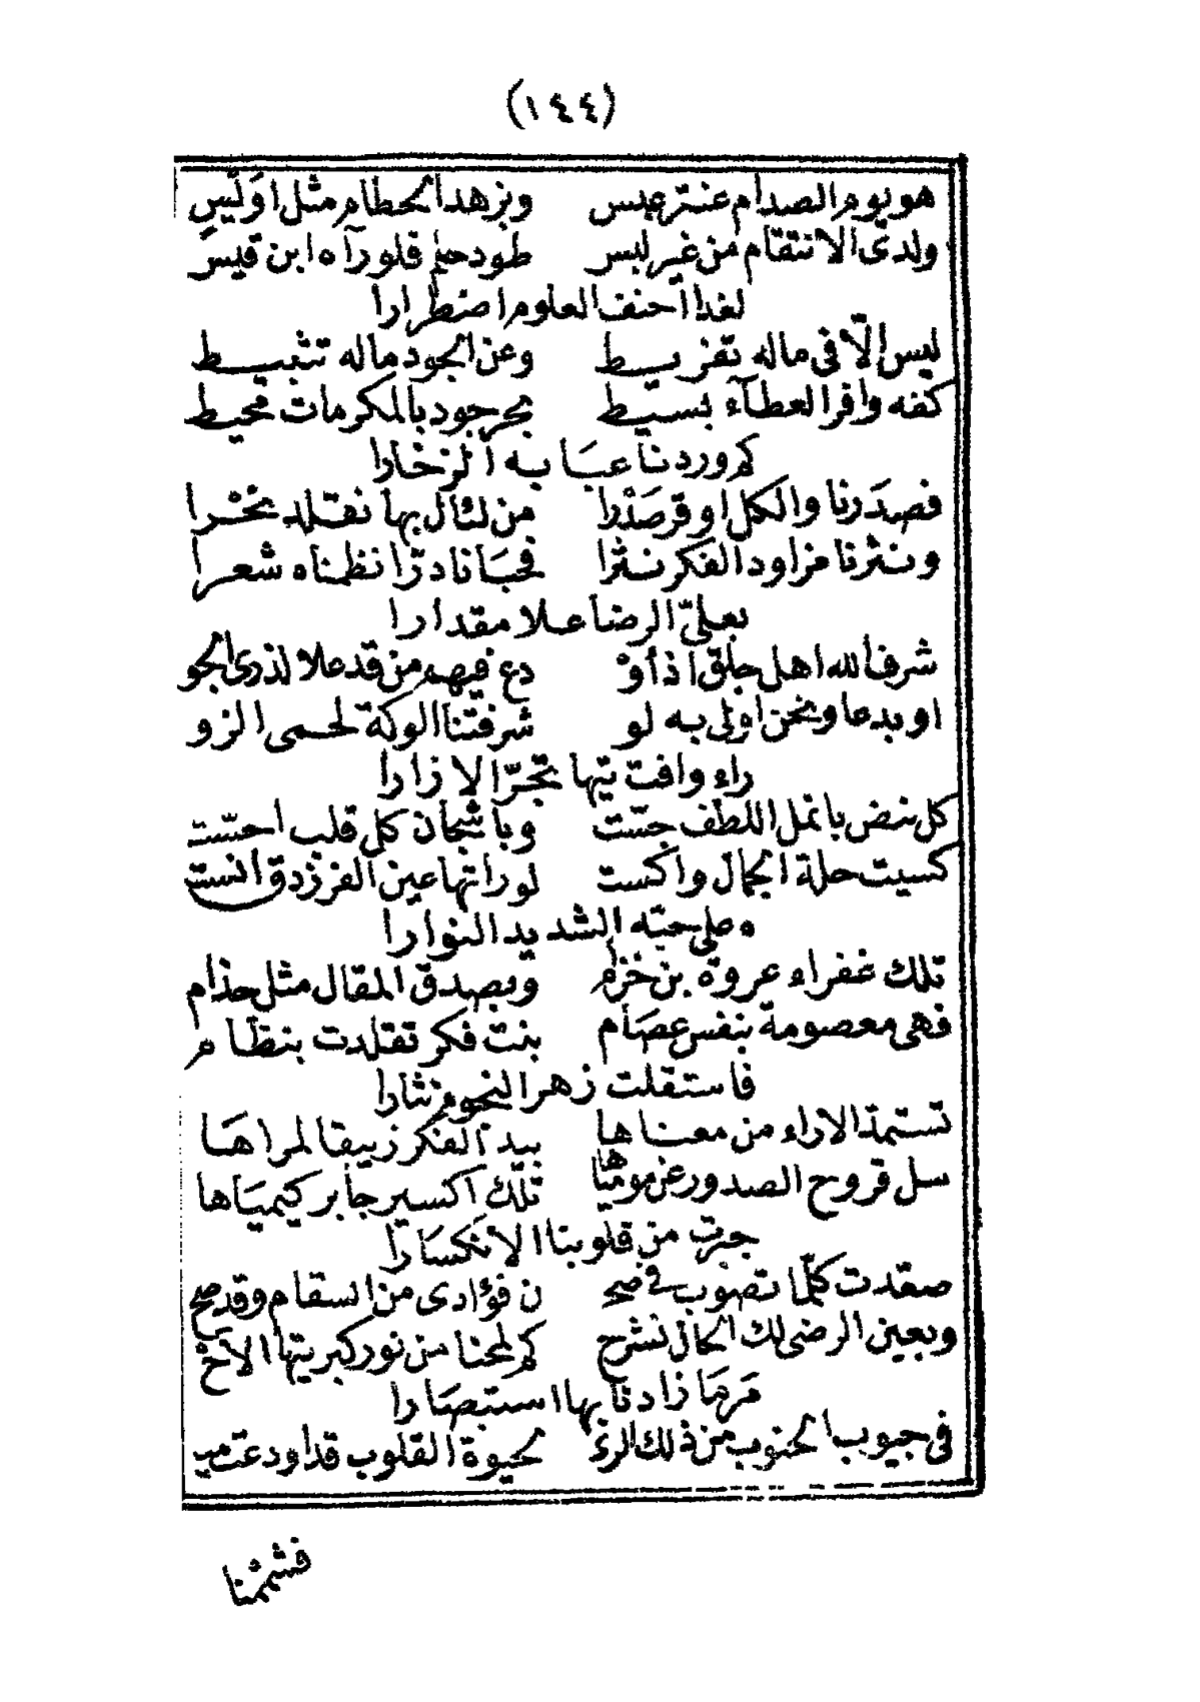 (١٤٤)
هو يوم الصدام عنتر عبس وبزهد الحطام مثل اويس
ولدى الانتقام من غير لبس طود حلم فلو رآه ابن قيس
لغدا احنف العلوم اضطرارا
ليس إلّا فى ماله تفريط وعن الجود ماله تثبيط
كفه وافر العطآء بسيط بحر جود بالمكرمات محيط
كم وردنا عبابه الزخارا
فصدرنا والكل اوقر صدْرا من لئال بها نقلد نحْرا
ونثرنا مزاود الفكر نثرا فحبانا درّا نظمناه شعرا
بعلىّ الرضا علا مقدارا
شرف الله اهل جلق اذ أوْ دع فيهم من قد علا لذرى الجو
او بدعا ونحن اولى به لو شرفتنا الوكة لحمى الزو
راء وافت تيها تجرّ الازارا
كل نبض بانمل اللطف جسّت وباشجان كل قلب احسّت
كسيت حلة الجمال واكست لو راتها عين الفرزدق انست
وعلى حبّه الشديد النوارا
تلك عفراء عروة بن حزام وبصدق المقال مثل حذام
فهى معصومة بنفس عصام بنت فكر تقلدت بنظام
فاستقلت زهر النجوم نثارا
تستمدّ الاراء من معناها بيد الفكر زيبقا لمراها
سل قروح الصدور عن موميّاها تلك اكسير جابر كيمياها
جبرت من قلوبنا الانكسارا
صعّدت كلّما تصوب فى صحـ ن فؤادى من السقام وقد صح
وبعين الرضى لك الحال تشرح كم لمحنا من نور كبريتها الاحْ
مر ما زادنا بها استبصارا
فى جيوب الجنوب من ذلك الرىّ لحيوة القلوب قد اودعت مى
فشممنا